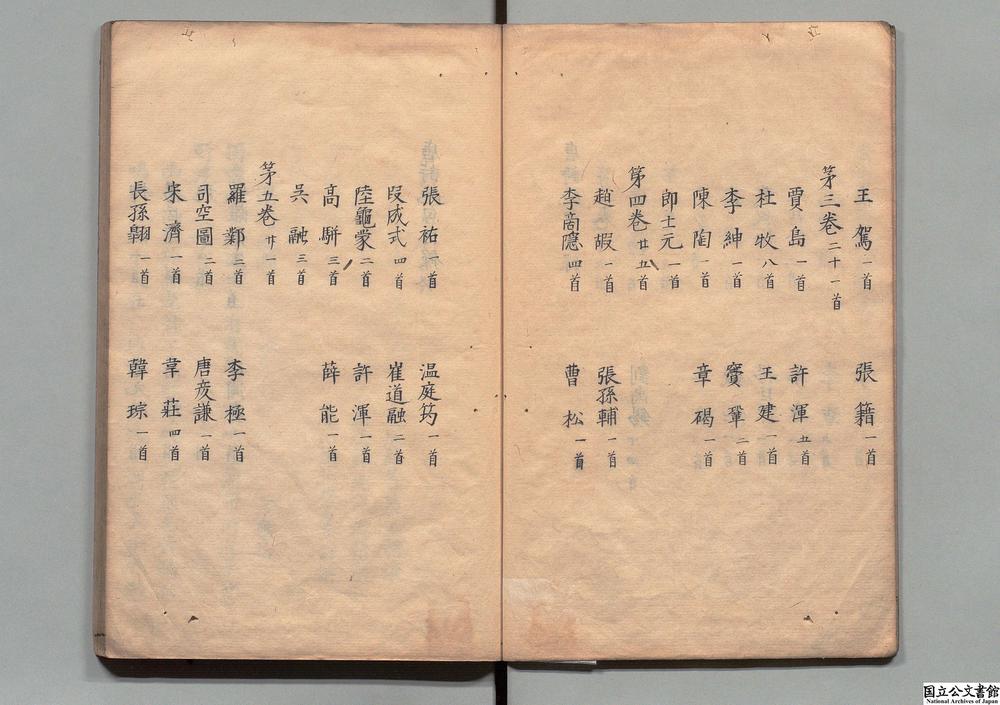 王駕一首 張籍一首
第三卷二十一首
賈島一首 許渾五首
杜牧八首 王建一首
李紳一首 竇鞏二首
陳陶一首 章碣一首
郎士元一首
第四卷廿五首
趙嘏一首 張孫輔一首
李商隱四首 曹松一首
張祐一首 温庭筠一首
段成式四首 崔道融二首
陸龜蒙二首 許渾一首
高駢三首 薛能一首
吳融三首
第五卷廿一首
羅鄴二首 李極一首
司空圖二首 唐彦謙一首
宋濟一首 韋莊四首
長孫翱一首 韓琮一首
国立公文書館
National Archives of Japan